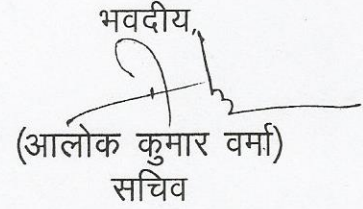 भवदीय,
(आलोक कुमार वर्मा)
सचिव